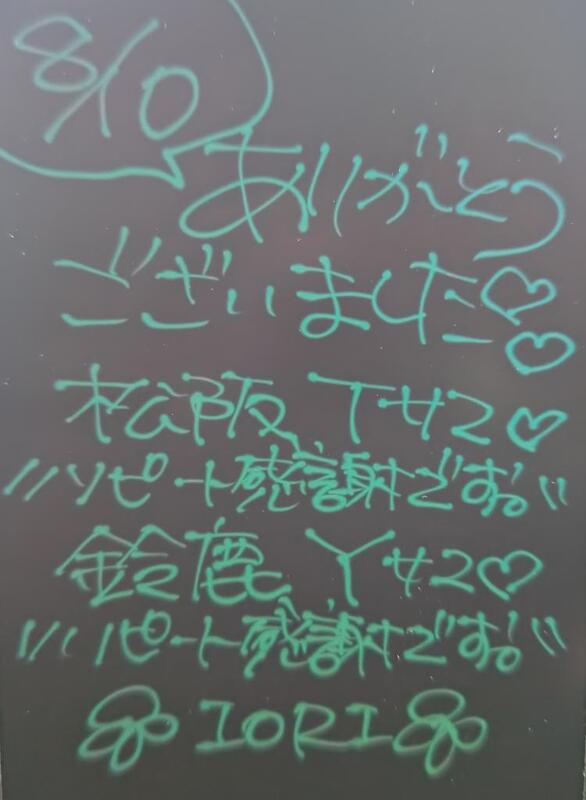 8/10
ありがとう
ございました♡♡
松阪 Tサマ♡
〃リピート感謝です。〃
鈴鹿 Yサマ♡
〃リピート感謝です。〃
IORI